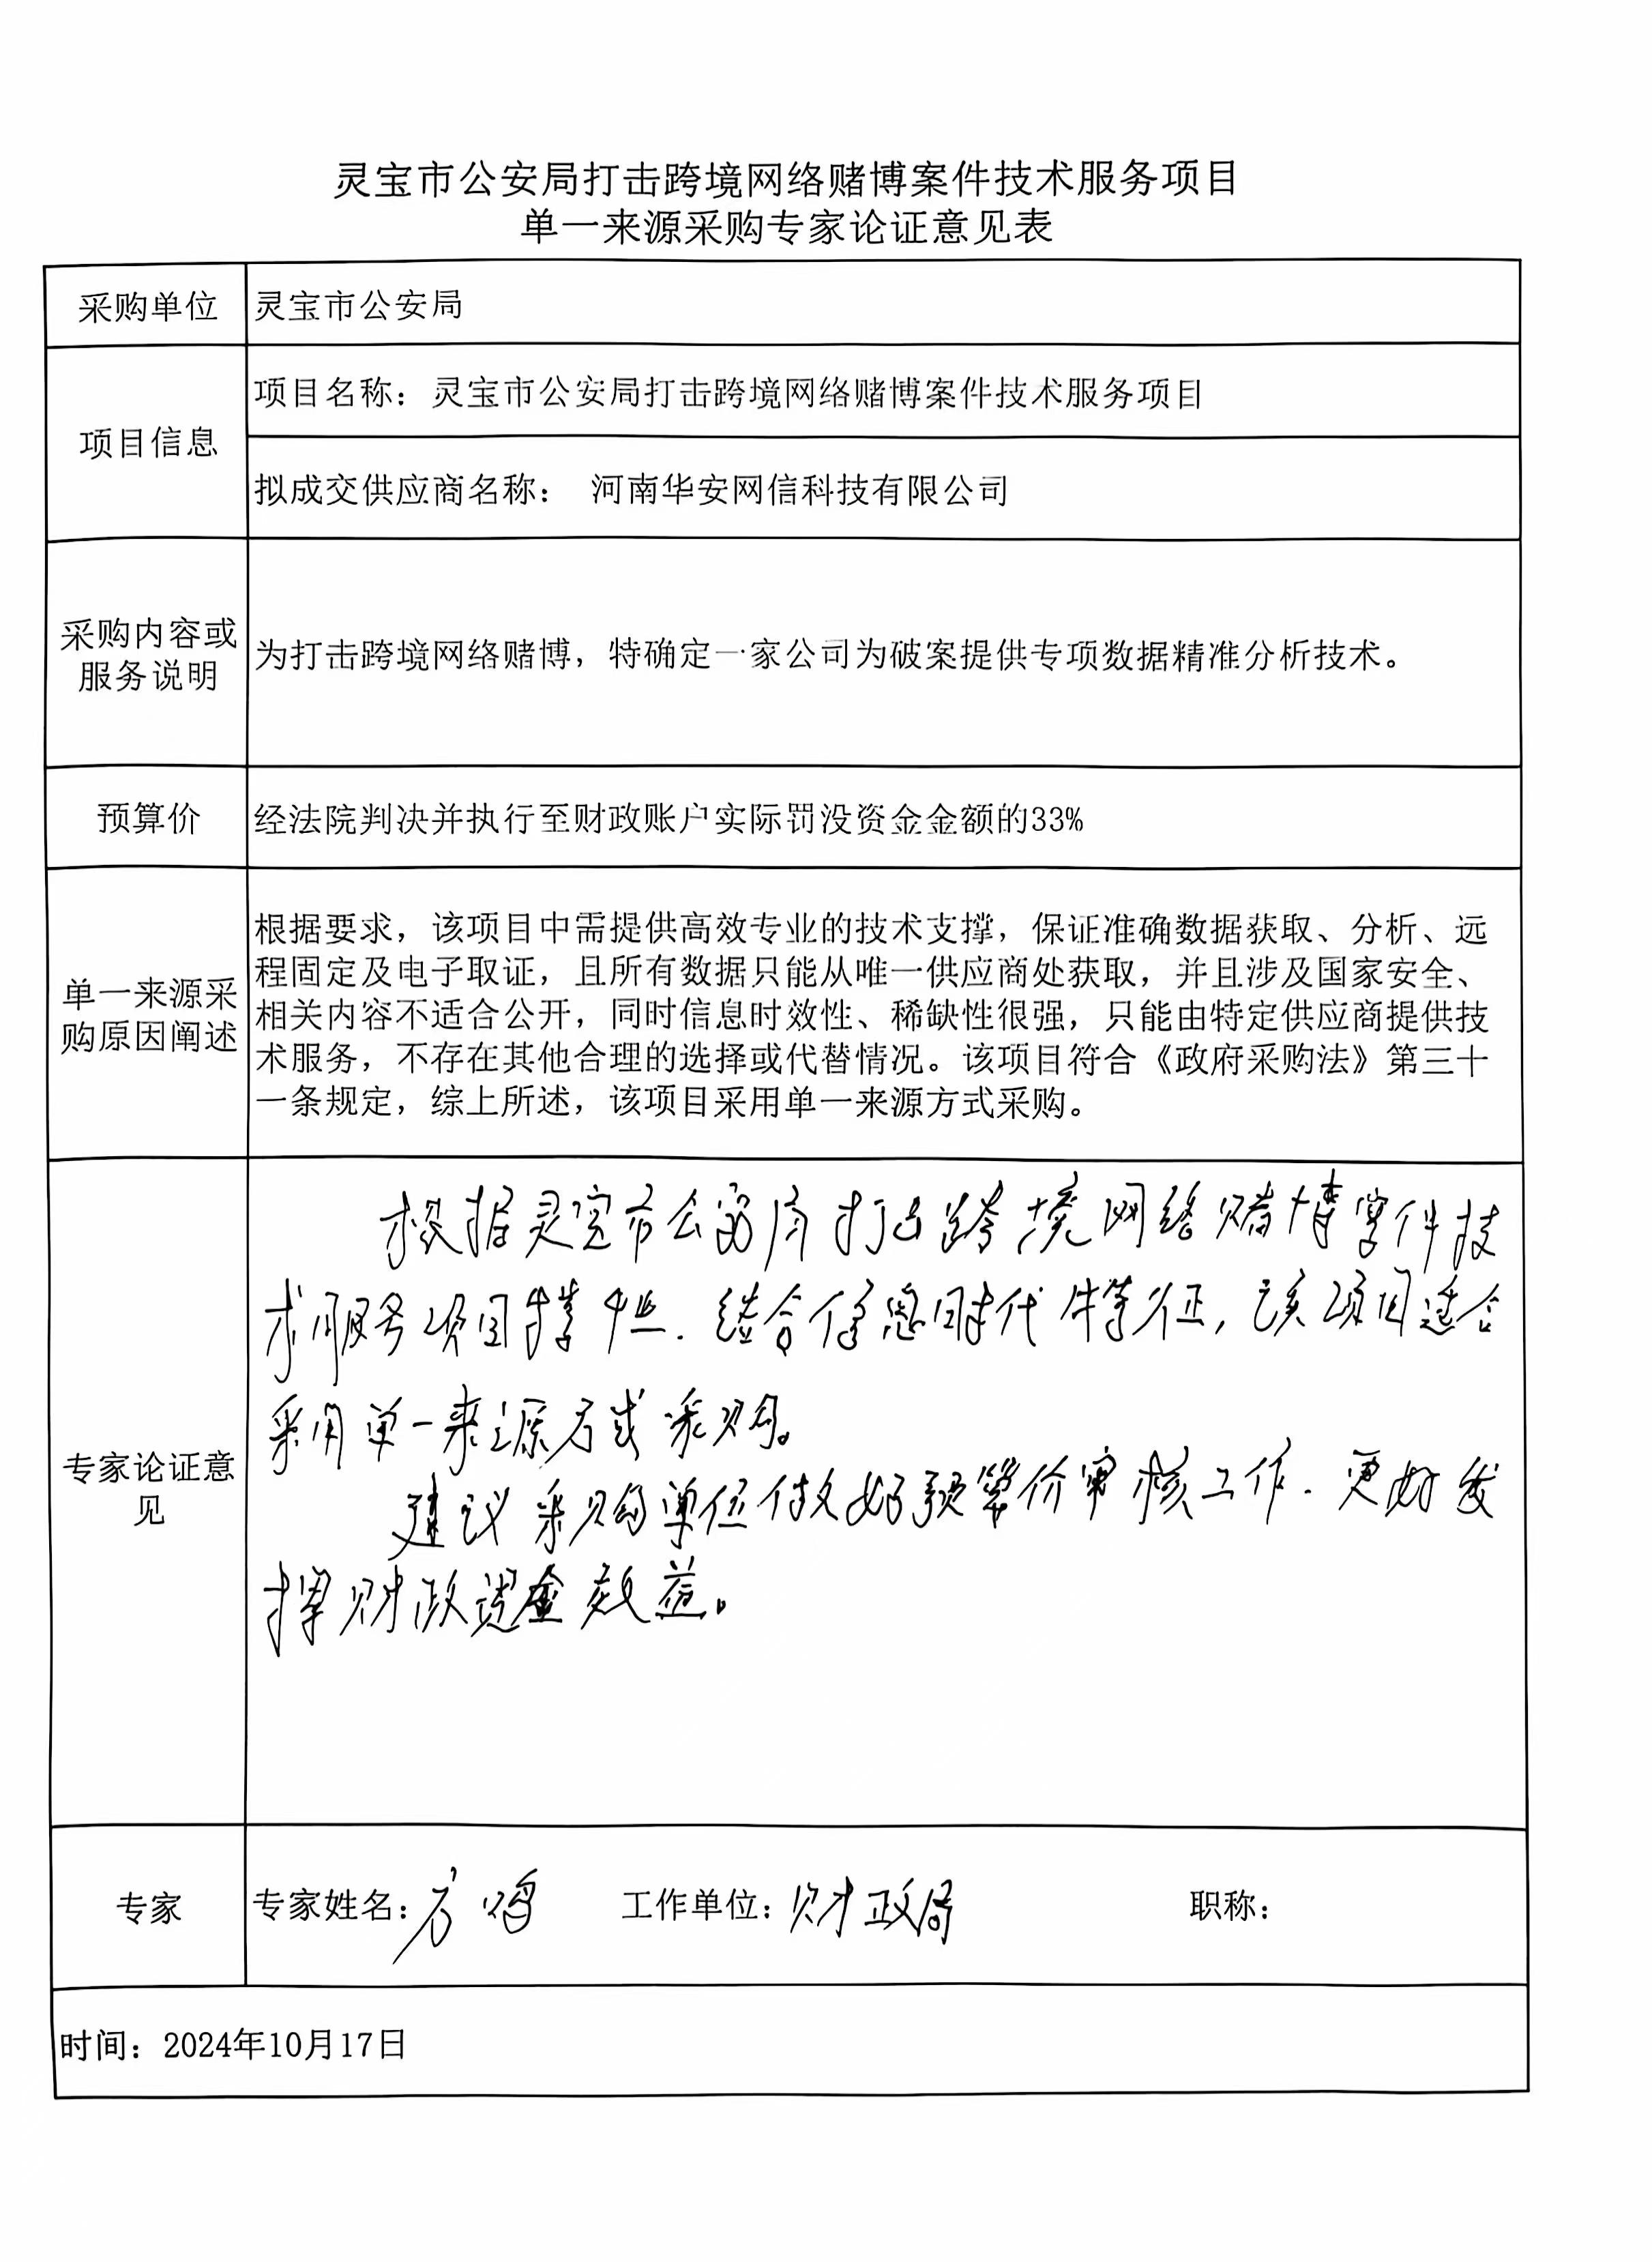 灵宝市公安局打击跨境网络赌博案件技术服务项目
单一来源采购专家论证意见表
采购单位
灵宝市公安局
项目信息
项目名称：灵宝市公安局打击跨境网络赌博案件技术服务项目
拟成交供应商名称： 河南华安网信科技有限公司
采购内容或
服务说明
为打击跨境网络赌博，特确定一家公司为破案提供专项数据精准分析技术。
预算价
经法院判决并执行至财政账户实际罚没资金金额的33%
单一来源采
购原因阐述
根据要求，该项目中需提供高效专业的技术支撑，保证准确数据获取、分析、远
程固定及电子取证，且所有数据只能从唯一供应商处获取，并且涉及国家安全、
相关内容不适合公开，同时信息时效性、稀缺性很强，只能由特定供应商提供技
术服务，不存在其他合理的选择或代替情况。该项目符合《政府采购法》第三十
一条规定，综上所述，该项目采用单一来源方式采购。
专家论证意
见
根据灵宝市公安局打击跨境网络赌博案件技
术服务项目，结合信息时代特征，该项目适合
采用单一来源方式采购。
建议采购单位做好预算价审核工作．更好发
挥财政资金效益。
专家
专家姓名：方鸣 工作单位：财政局 职称：
时间：2024年10月17日